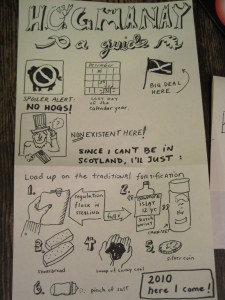 HOGMANAY
a guide
SPOILER ALERT:
NO HOGS!
December
last day
of the
calendar year.
BIG DEAL
HERE
NON EXISTENT HERE!
SINCE I CAN'T BE IN
SCOTLAND, I'LL JUST:
Load up on the traditional fortification.
1.
regulation
flask in
STERLING
fully
2.
ISLAY
12 yr.
3.
shortbread
4
lump of coal
5.
silver coin
6.
pinch of salt
2010
here I come!